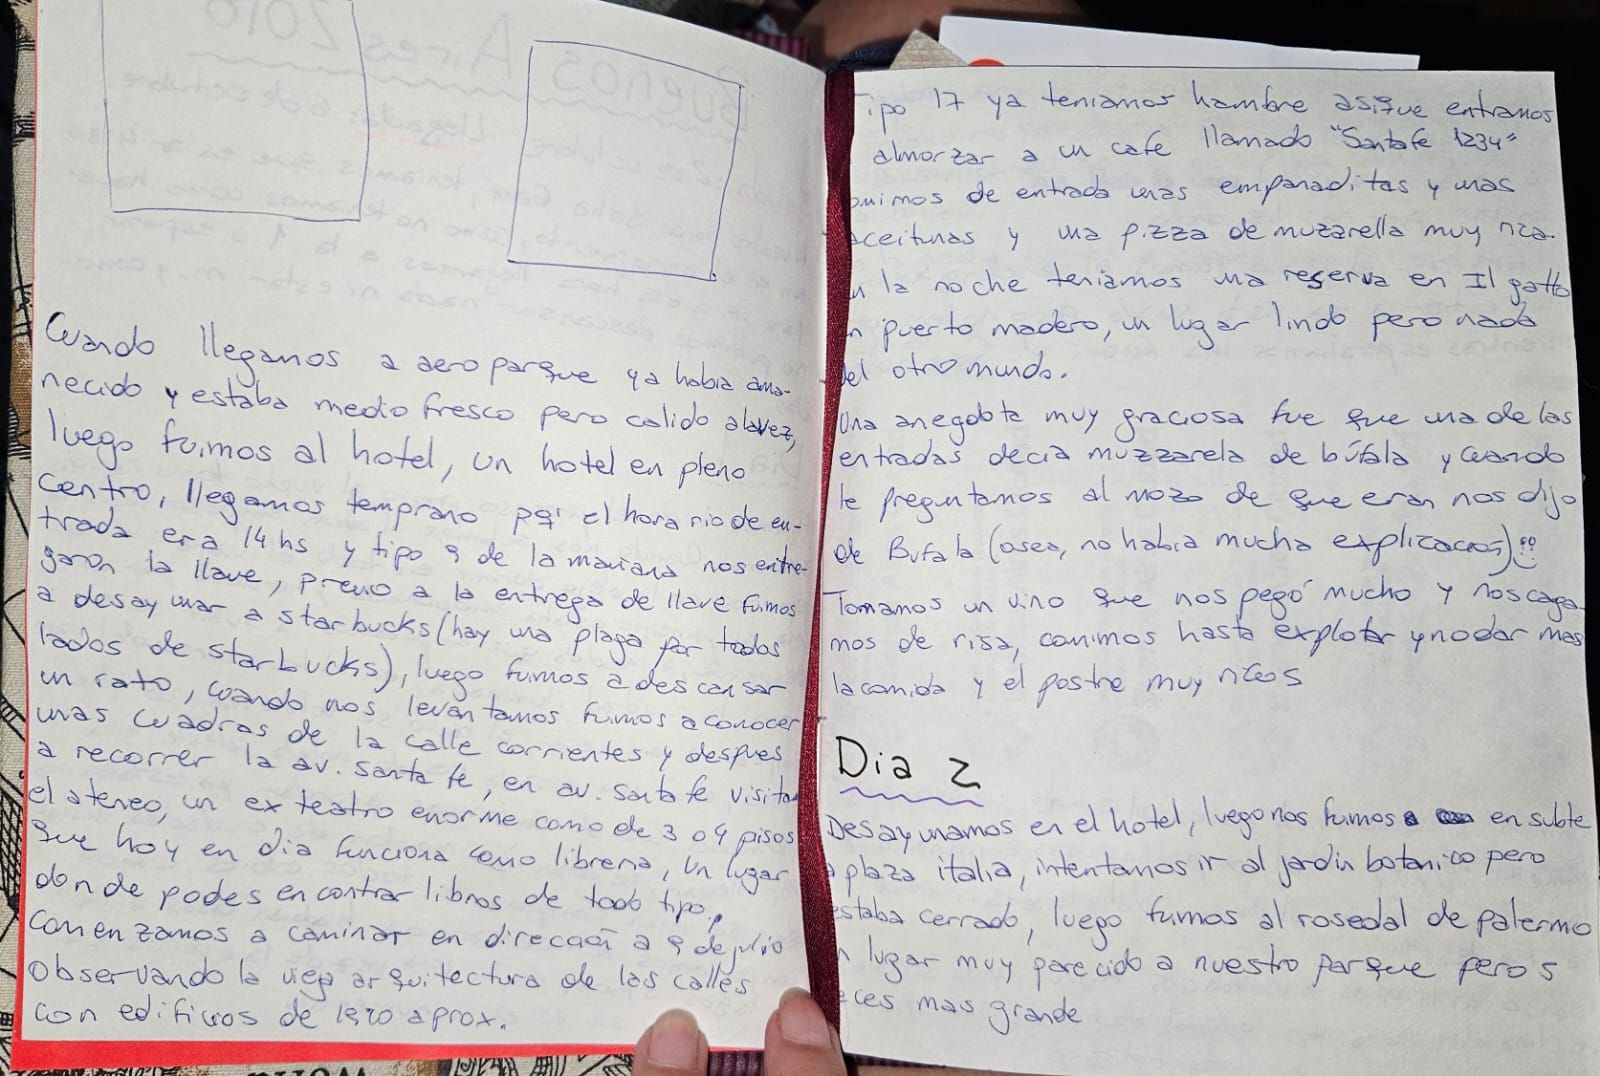 Cuando llegamos a aeroparque ya habia ama-
necido y estaba medio fresco pero calido alavez,
luego fuimos al hotel, un hotel en pleno
centro, llegamos temprano pq' el horario de en-
trada era 14 hs y tipo 9 de la mañana nos entre-
garon la llave, previo a la entrega de llave fuimos
a desayunar a starbucks (hay una plaga por todos
lados de starbucks), luego fuimos a descansar
un rato, cuando nos levantamos fuimos a conocer
unas cuadras de la calle corrientes y despues
a recorrer la av. santa fe, en av. santa fe visita
el ateneo, un ex teatro enorme como de 3 o 4 pisos
que hoy en dia funciona como libreria, un lugar
donde podes encontrar libros de todo tipo,
comenzamos a caminar en dirección a 9 de julio
observando la vieja arquitectura de las calles
con edificios de 1920 aprox.
Tipo 17 ya teniamos hambre asique entramos
almorzar a un cafe llamado "Santa fe 1234"
pedimos de entrada unas empanaditas y unas
aceitunas y una pizza de muzarella muy rica.
en la noche teniamos una reserva en Il gatto
en puerto madero, un lugar lindo pero nada
del otro mundo.
Una anegdota muy graciosa fue que una de las
entradas decia muzzarela de búfala y cuando
le preguntamos al mozo de que eran nos dijo
de Bufala (osea, no habia mucha explicación)!!
Tomamos un vino que nos pegó mucho y nos caga-
mos de risa, comimos hasta explotar y no dar mas
la comida y el postre muy ricos
Dia 2
Desayunamos en el hotel, luego nos fuimos en subte
a plaza italia, intentamos ir al jardin botanico pero
estaba cerrado, luego fuimos al rosedal de palermo
un lugar muy parecido a nuestro parque pero 5
veces mas grande